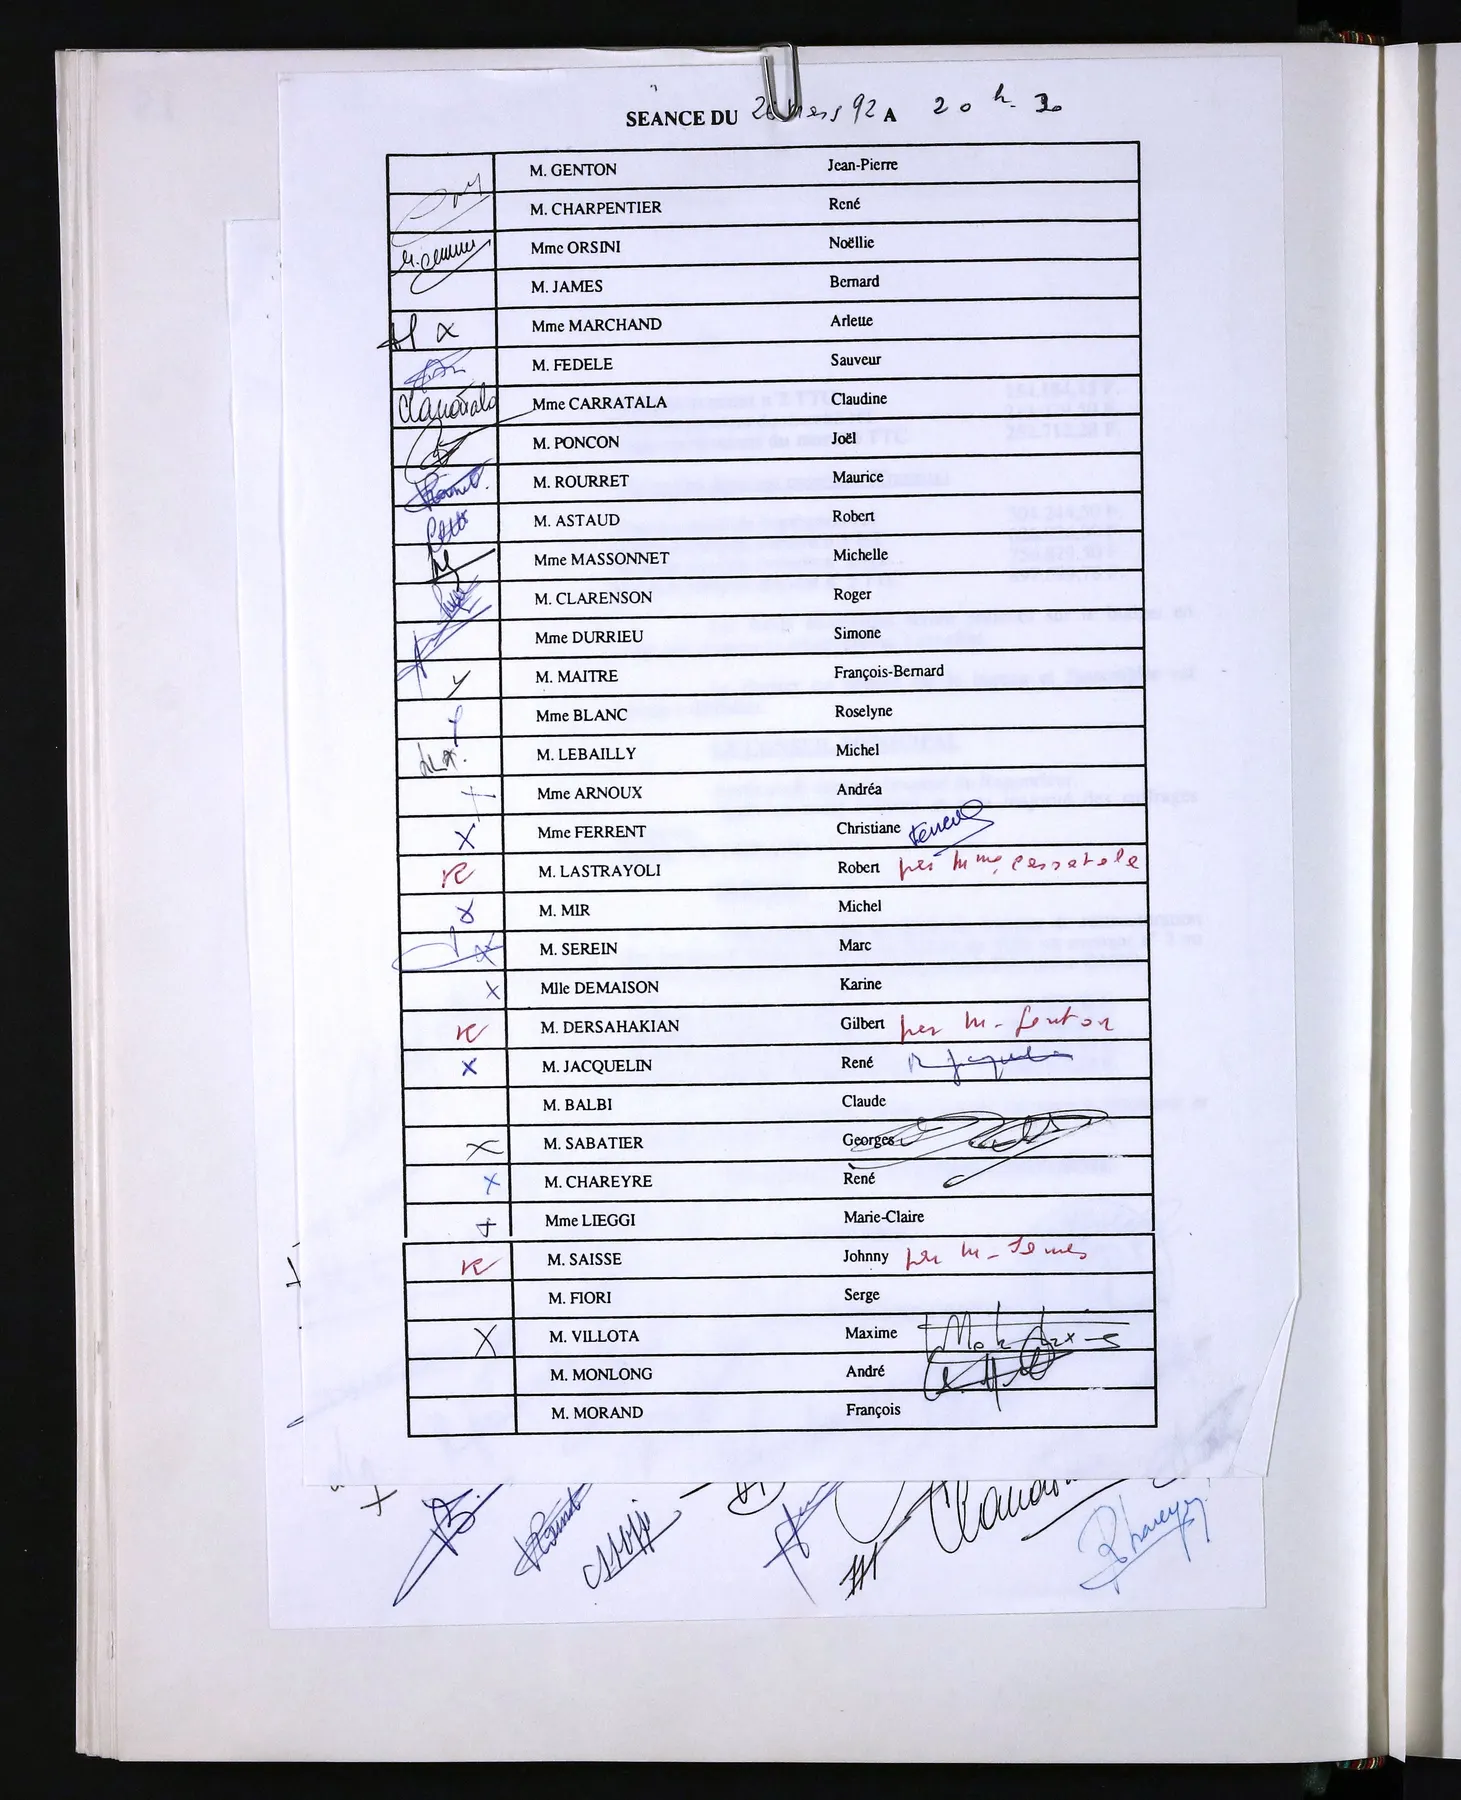 SEANCE DU 2 mars 92 A 20 h. 30
M. GENTON Jean-Pierre
M. CHARPENTIER René
Mme ORSINI Noëllie
M. JAMES Bernard
Mme MARCHAND Arlette
M. FEDELE Sauveur
Mme CARRATALA Claudine
M. PONCON Joël
M. ROURRET Maurice
M. ASTAUD Robert
Mme MASSONNET Michelle
M. CLARENSON Roger
Mme DURRIEU Simone
M. MAITRE François-Bernard
Mme BLANC Roselyne
M. LEBAILLY Michel
Mme ARNOUX Andréa
Mme FERRENT Christiane
M. LASTRAYOLI Robert par Mme Carratala
M. MIR Michel
M. SEREIN Marc
Mlle DEMAISON Karine
M. DERSAHAKIAN Gilbert par M. Genton
M. JACQUELIN René R Jacquelin
M. BALBI Claude
M. SABATIER Georges
M. CHAREYRE René
Mme LIEGGI Marie-Claire
M. SAISSE Johnny par M. James
M. FIORI Serge
M. VILLOTA Maxime
M. MONLONG André
M. MORAND François